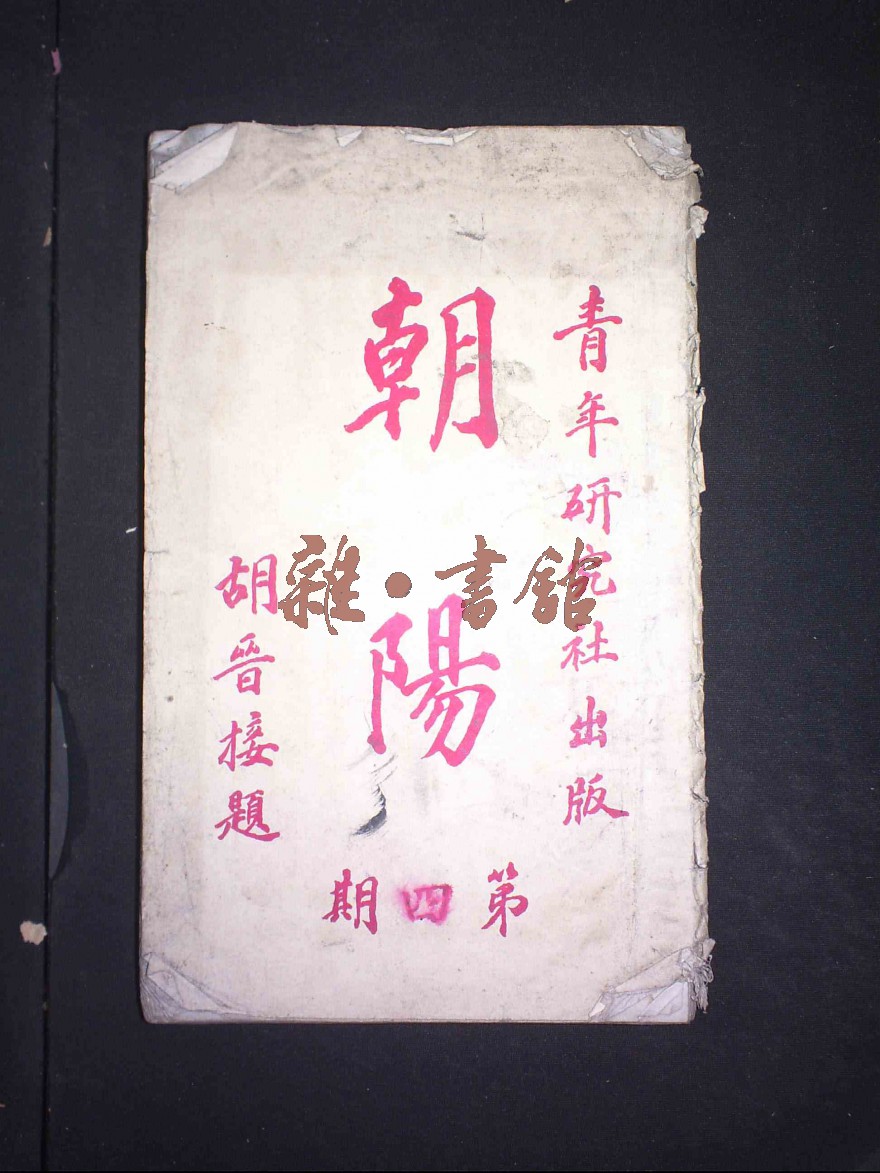 青年研究社出版
朝陽
胡晉接題
第四期
雜·書館